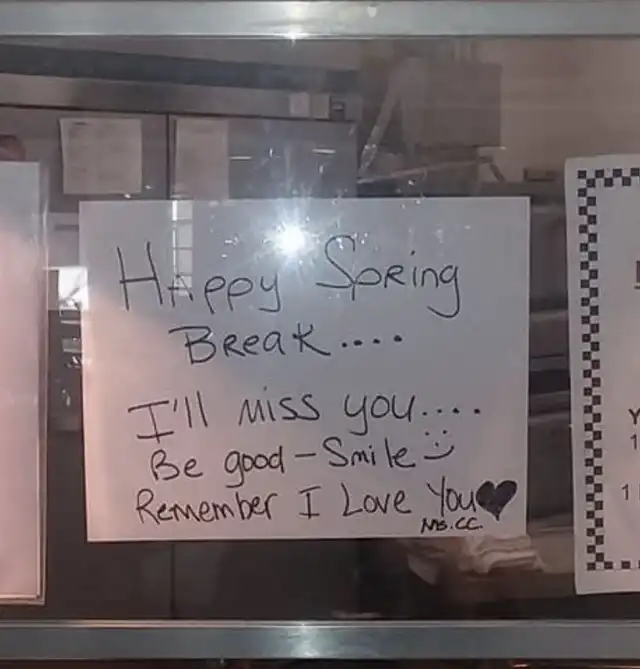 Happy Spring
Break....
I'll miss you....
Be good - Smile
Remember I Love You
Ms. CC.
Y
1
1